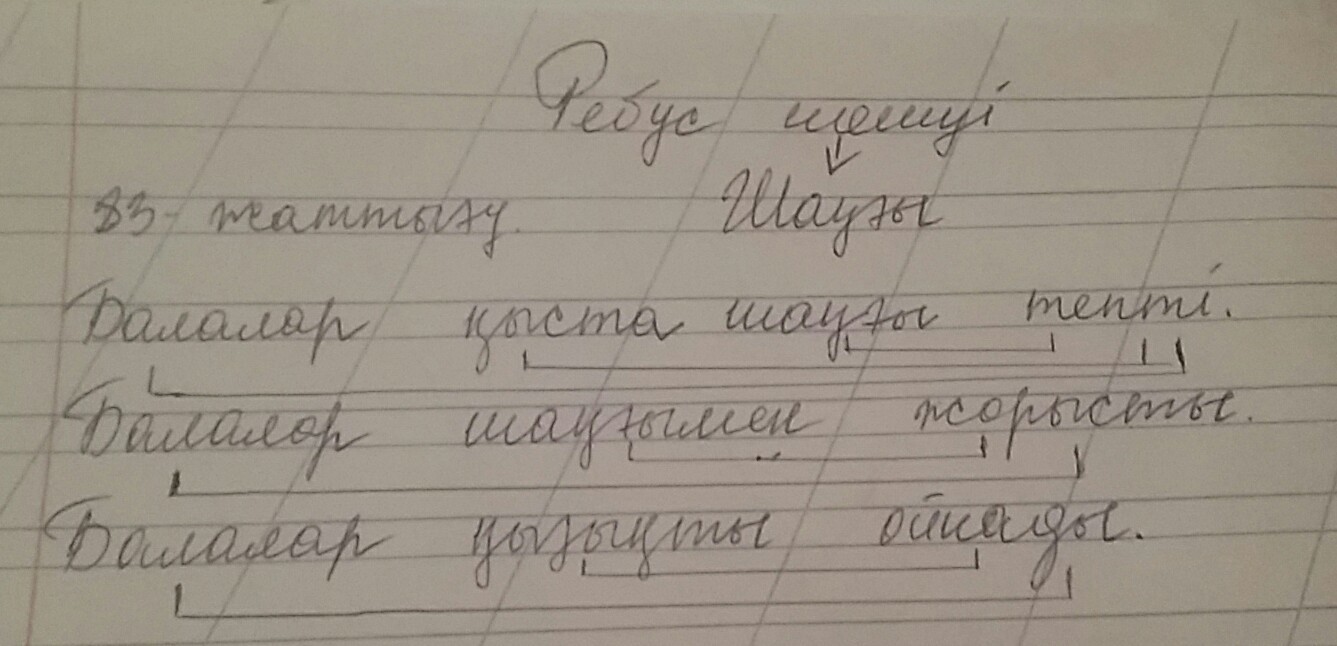 Ребус шешуі
83- жаттығу. Шаңғы
Балалар қыста шаңғы тепті.
Балалар шаңғымен жарысты.
Балалар қызықты ойнады.